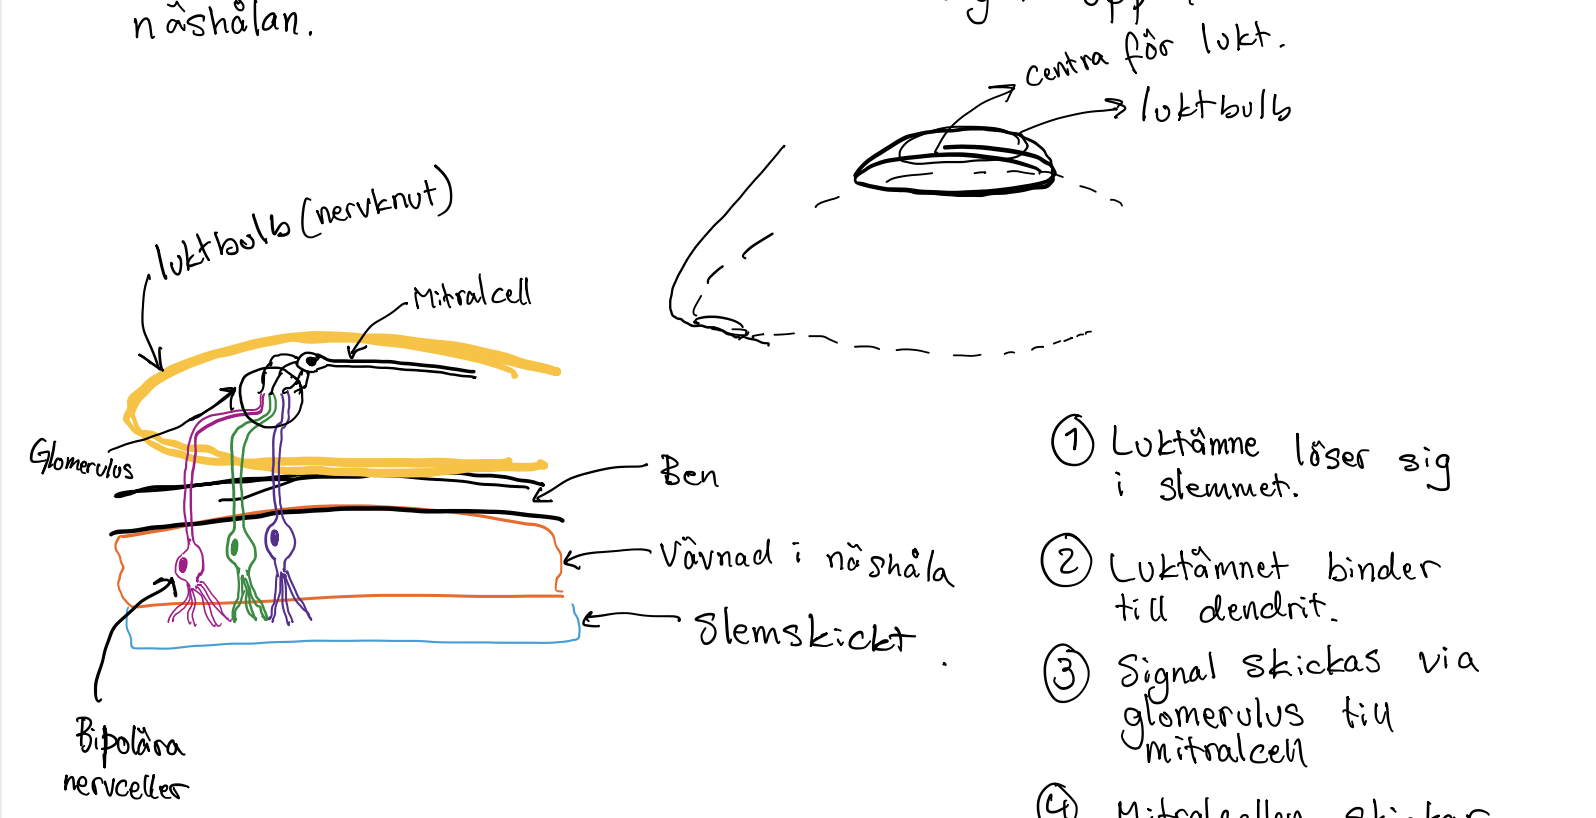 näshålan.
centra för lukt.
luktbulb
luktbulb (nervknut)
Mitralcell
Glomerulus
Ben
Vävnad i näshåla
Slemskickt.
Bipolära
nervceller
1 Luktämne löser sig
i slemmet.
2 Luktämnet binder
till dendrit.
3 Signal skickas via
glomerulus till
mitralcell
4 Mitralcellen skickar